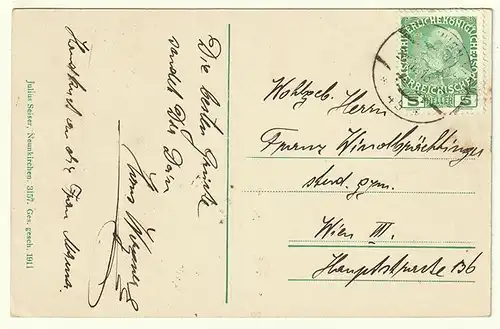 Die besten Grüße
sendet Dir Dein
Handkuß an die Frau Mama.
Julius Seiser, Neunkirchen. 3157. Ges. gesch. 1911
5 HELLER 5
Wohlgeb. Herrn
Franz Windspächtinger
stud. gym.
Wien III.
Hauptstraße 136